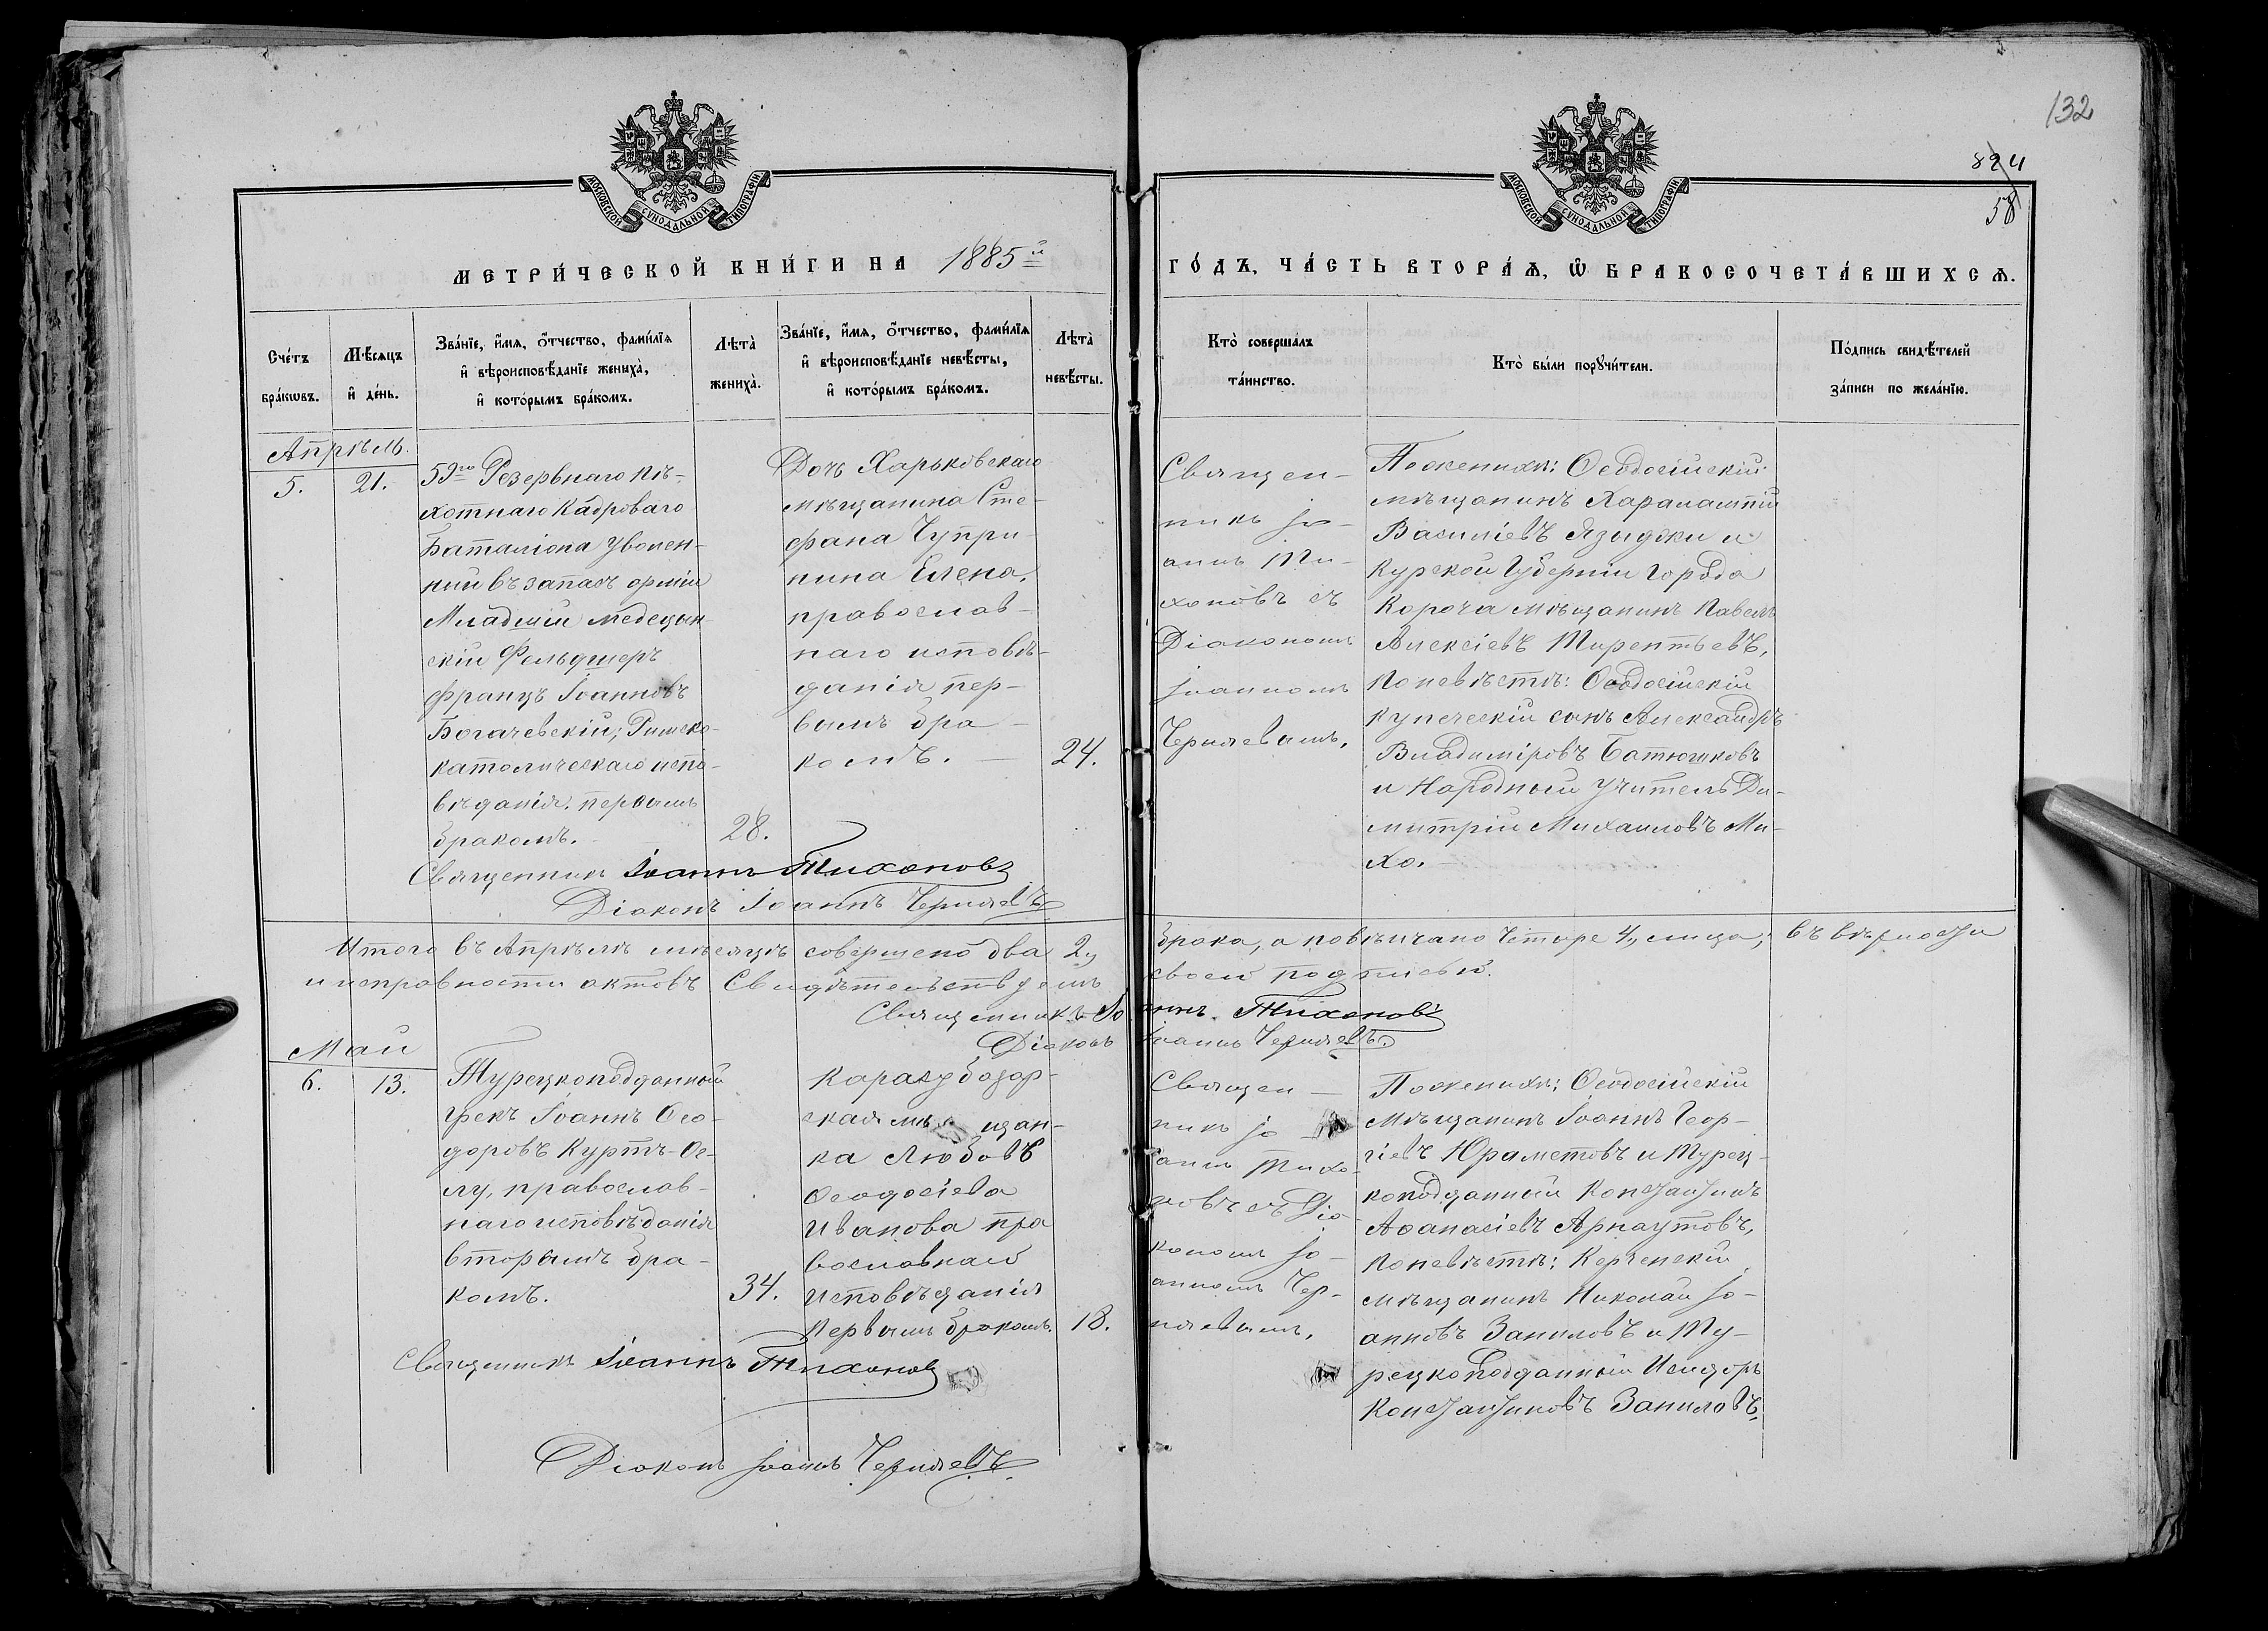 132
824
58
МОСКОВСКОЙ СѴНОДАЛЬНОЙ ТИПОГРАФІИ
МОСКОВСКОЙ СѴНОДАЛЬНОЙ ТИПОГРАФІИ
МЕТРИ́ЧЕСКОЙ КНИ́ГИ НА 1885й
ГО́ДЪ, ЧА́СТЬ ВТОРА́Ѧ, Ѿ БРАКОСОЧЕТА́ВШИХСѦ.
Сче́тъ
бра́кѡвъ.
Мѣ́сяцъ
и҆ де́нь.
Зва́нїе, и҆́мѧ, ѻ҆́тчество, фами́лїѧ
и҆ вѣроисповѣ́данїе жениха̀,
и҆ кото́рымъ бра́комъ.
Лѣта̀
жениха̀.
Зва́нїе, и҆́мѧ, ѻ҆́тчество, фами́лїѧ
и҆ вѣроисповѣ́данїе невѣ́сты,
и҆ кото́рымъ бра́комъ.
Лѣта̀
невѣ́сты.
Кто̀ соверша́лъ
та́инство.
Кто̀ бы́ли порꙋчи́тели.
По́дпись свидѣ́телей
за́писи по жела́нїю.
Апрѣль.
5.
21.
59го Резервнаго пѣ-
хотнаго Кадроваго
Баталіона уволен-
ный въ запасъ арміи
Младшій медецын
скій Фельдшеръ
Францъ Іоанновъ
Богачевскій; Римско-
католическаго испо-
вѣданія. первымъ
бракомъ.
28.
Дочь Харьковскаго
мѣщанина Сте-
фана Чупри-
нина Елена,
православ-
наго исповѣ-
данія пер-
вымъ бра-
комъ.
24.
Священ-
никъ Іо-
аннъ Ти-
хоновъ съ
Діакономъ
Іоанномъ
Черняевымъ.
По женихѣ: Ѳеодосійскій
мѣщанинъ Харалампій
Василіевъ Языджи и
Курской Губерніи города
Короча мѣщанинъ Павелъ
Алексіевъ Терентьевъ,
По невѣстѣ: Ѳеодосійскій
купеческій сынъ Александръ
Владиміровъ Батюшковъ
и Народный учитель Ди-
митрій Михаиловъ Ми-
хо.
Священникъ Іоаннъ Тихоновъ
Діаконъ Іоаннъ Черняевъ
Итого въ Апрѣлѣ мѣсяцѣ совершено два 2,, брака, а повѣнчано четыре 4,, лица, въ вѣрности
и исправности актовъ Свидѣтельствуемъ своей подписью.
Священникъ Іоаннъ Тихоновъ
Діаконъ Іоаннъ Черняевъ.
Май
6.
13.
Турецкоподданный
грекъ Іоаннъ Ѳео-
доровъ Куртъ-Ог-
лу, православ-
наго исповѣданія
вторымъ бра-
комъ.
34.
Карасубазар-
ская мѣщан-
ка Любовь
Ѳеодосіева
Иванова пра
вославнаго
исповѣданія
первымъ бракомъ.
18.
Священ-
никъ Іо-
аннъ Тихо-
новъ съ Діа-
кономъ Іо-
анномъ Чер-
няевымъ.
По женихѣ: Ѳеодосійскій
мѣщанинъ Іоаннъ Геор-
гіевъ Юраметовъ и Турец-
коподданный Константинъ
Аѳанасіевъ Арнаутовъ,
По невѣстѣ: Керченскій
мѣщанинъ Николай Іо-
анновъ Запиловъ и Ту-
рецкоподданный Исидоръ
Константиновъ Запиловъ.
Священникъ Іоаннъ Тихоновъ
Діаконъ Іоаннъ Черняевъ